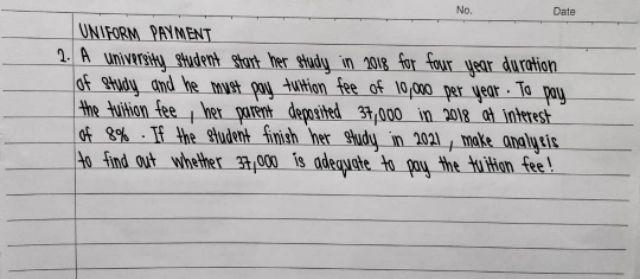 No. Date
UNIFORM PAYMENT
2. A university student start her study in 2018 for four year duration
of study and he must pay tuition fee of 10,000 per year. To pay
the tuition fee, her parent deposited 37,000 in 2018 at interest
of 8%. If the student finish her study in 2021, make analysis
to find out whether 37,000 is adequate to pay the tuition fee!